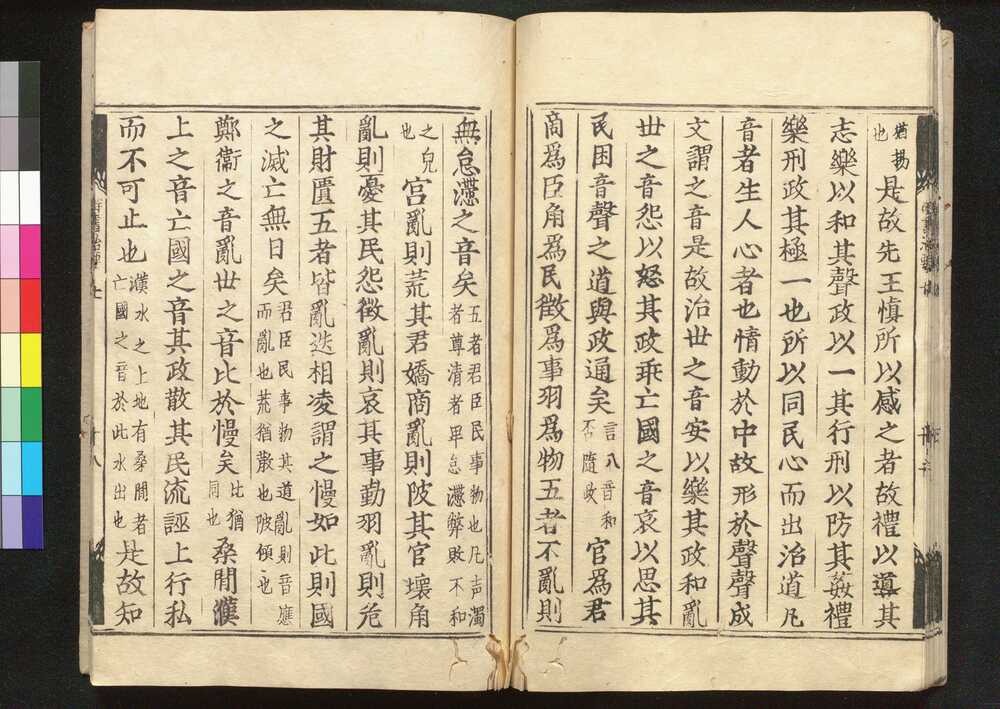 猶揚也是故先王慎所以感之者故禮以導其
志樂以和其聲政以一其行刑以防其姦禮
樂刑政其極一也所以同民心而出治道凡
音者生人心者也情動於中故形於聲聲成
文謂之音是故治世之音安以樂其政和亂
世之音怨以怒其政乖亡國之音哀以思其
民困音聲之道與政通矣言八音和否隨政官為君
商為臣角為民徵為事羽為物五者不亂則
無怠懘之音矣五者君臣民事物也凡声濁者尊清者卑怠懘弊敗不和
之皃也宮亂則荒其君嬌商亂則陂其官壞角
亂則憂其民怨徵亂則哀其事勤羽亂則危
其財匱五者皆亂迭相凌謂之慢如此則國
之滅亡無日矣君臣民事物其道亂則音應而亂也荒猶散也陂傾也
鄭衞之音亂世之音比於慢矣比猶同也桑間濮
上之音亡國之音其政散其民流誣上行私
而不可止也濮水之上地有桑間者亡國之音於此水出也是故知
群書治要 七
十八